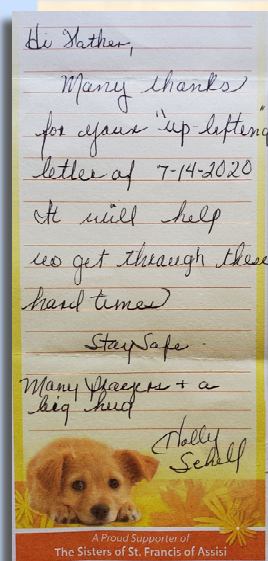 Hi Father,
Many thanks
for your "up-lifteng
letter of 7-14-2020
It will help
us get through these
hard times
Stay Safe.
Many Prayers + a
big hug
Holly
Schell
A Proud Supporter of
The Sisters of St. Francis of Assisi